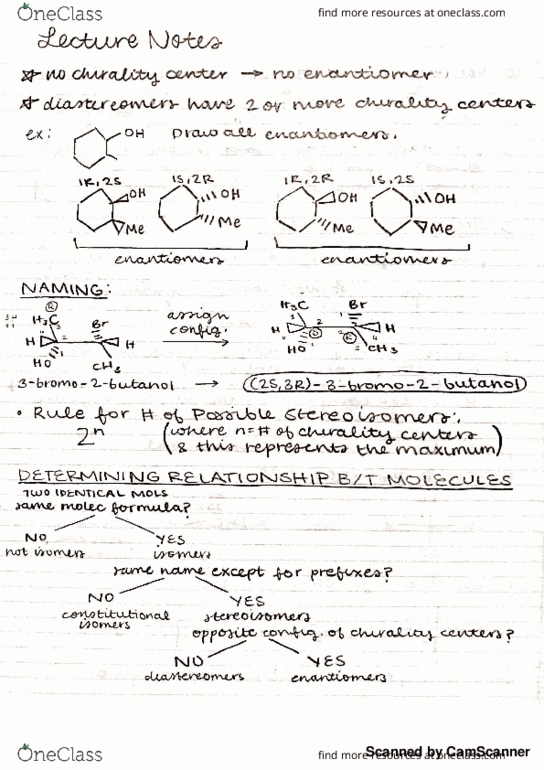 OneClass
find more resources at oneclass.com
Lecture Notes
* no chirality center → no enantiomer
* diastereomers have 2 or more chirality centers
ex: OH Draw all enantiomers.
1R,2S 1S,2R 1R,2R 1S,2S
OH OH OH OH
Me Me Me Me
enantiomers enantiomers
NAMING:
R
H3C Br assign H3C Br
H H config. H H
HO CH3 HO CH3
3-bromo-2-butanol → (2S,3R)-3-bromo-2-butanol
• Rule for # of Possible Stereoisomers:
2^n (where n=# of chirality centers
& this represents the maximum)
DETERMINING RELATIONSHIP B/T MOLECULES
TWO IDENTICAL MOLS
same molec formula?
NO YES
not isomers isomers
same name except for prefixes?
NO YES
constitutional stereoisomers
isomers
opposite config. of chirality centers?
NO YES
diastereomers enantiomers
OneClass
find more resources at oneclass.com
Scanned by CamScanner